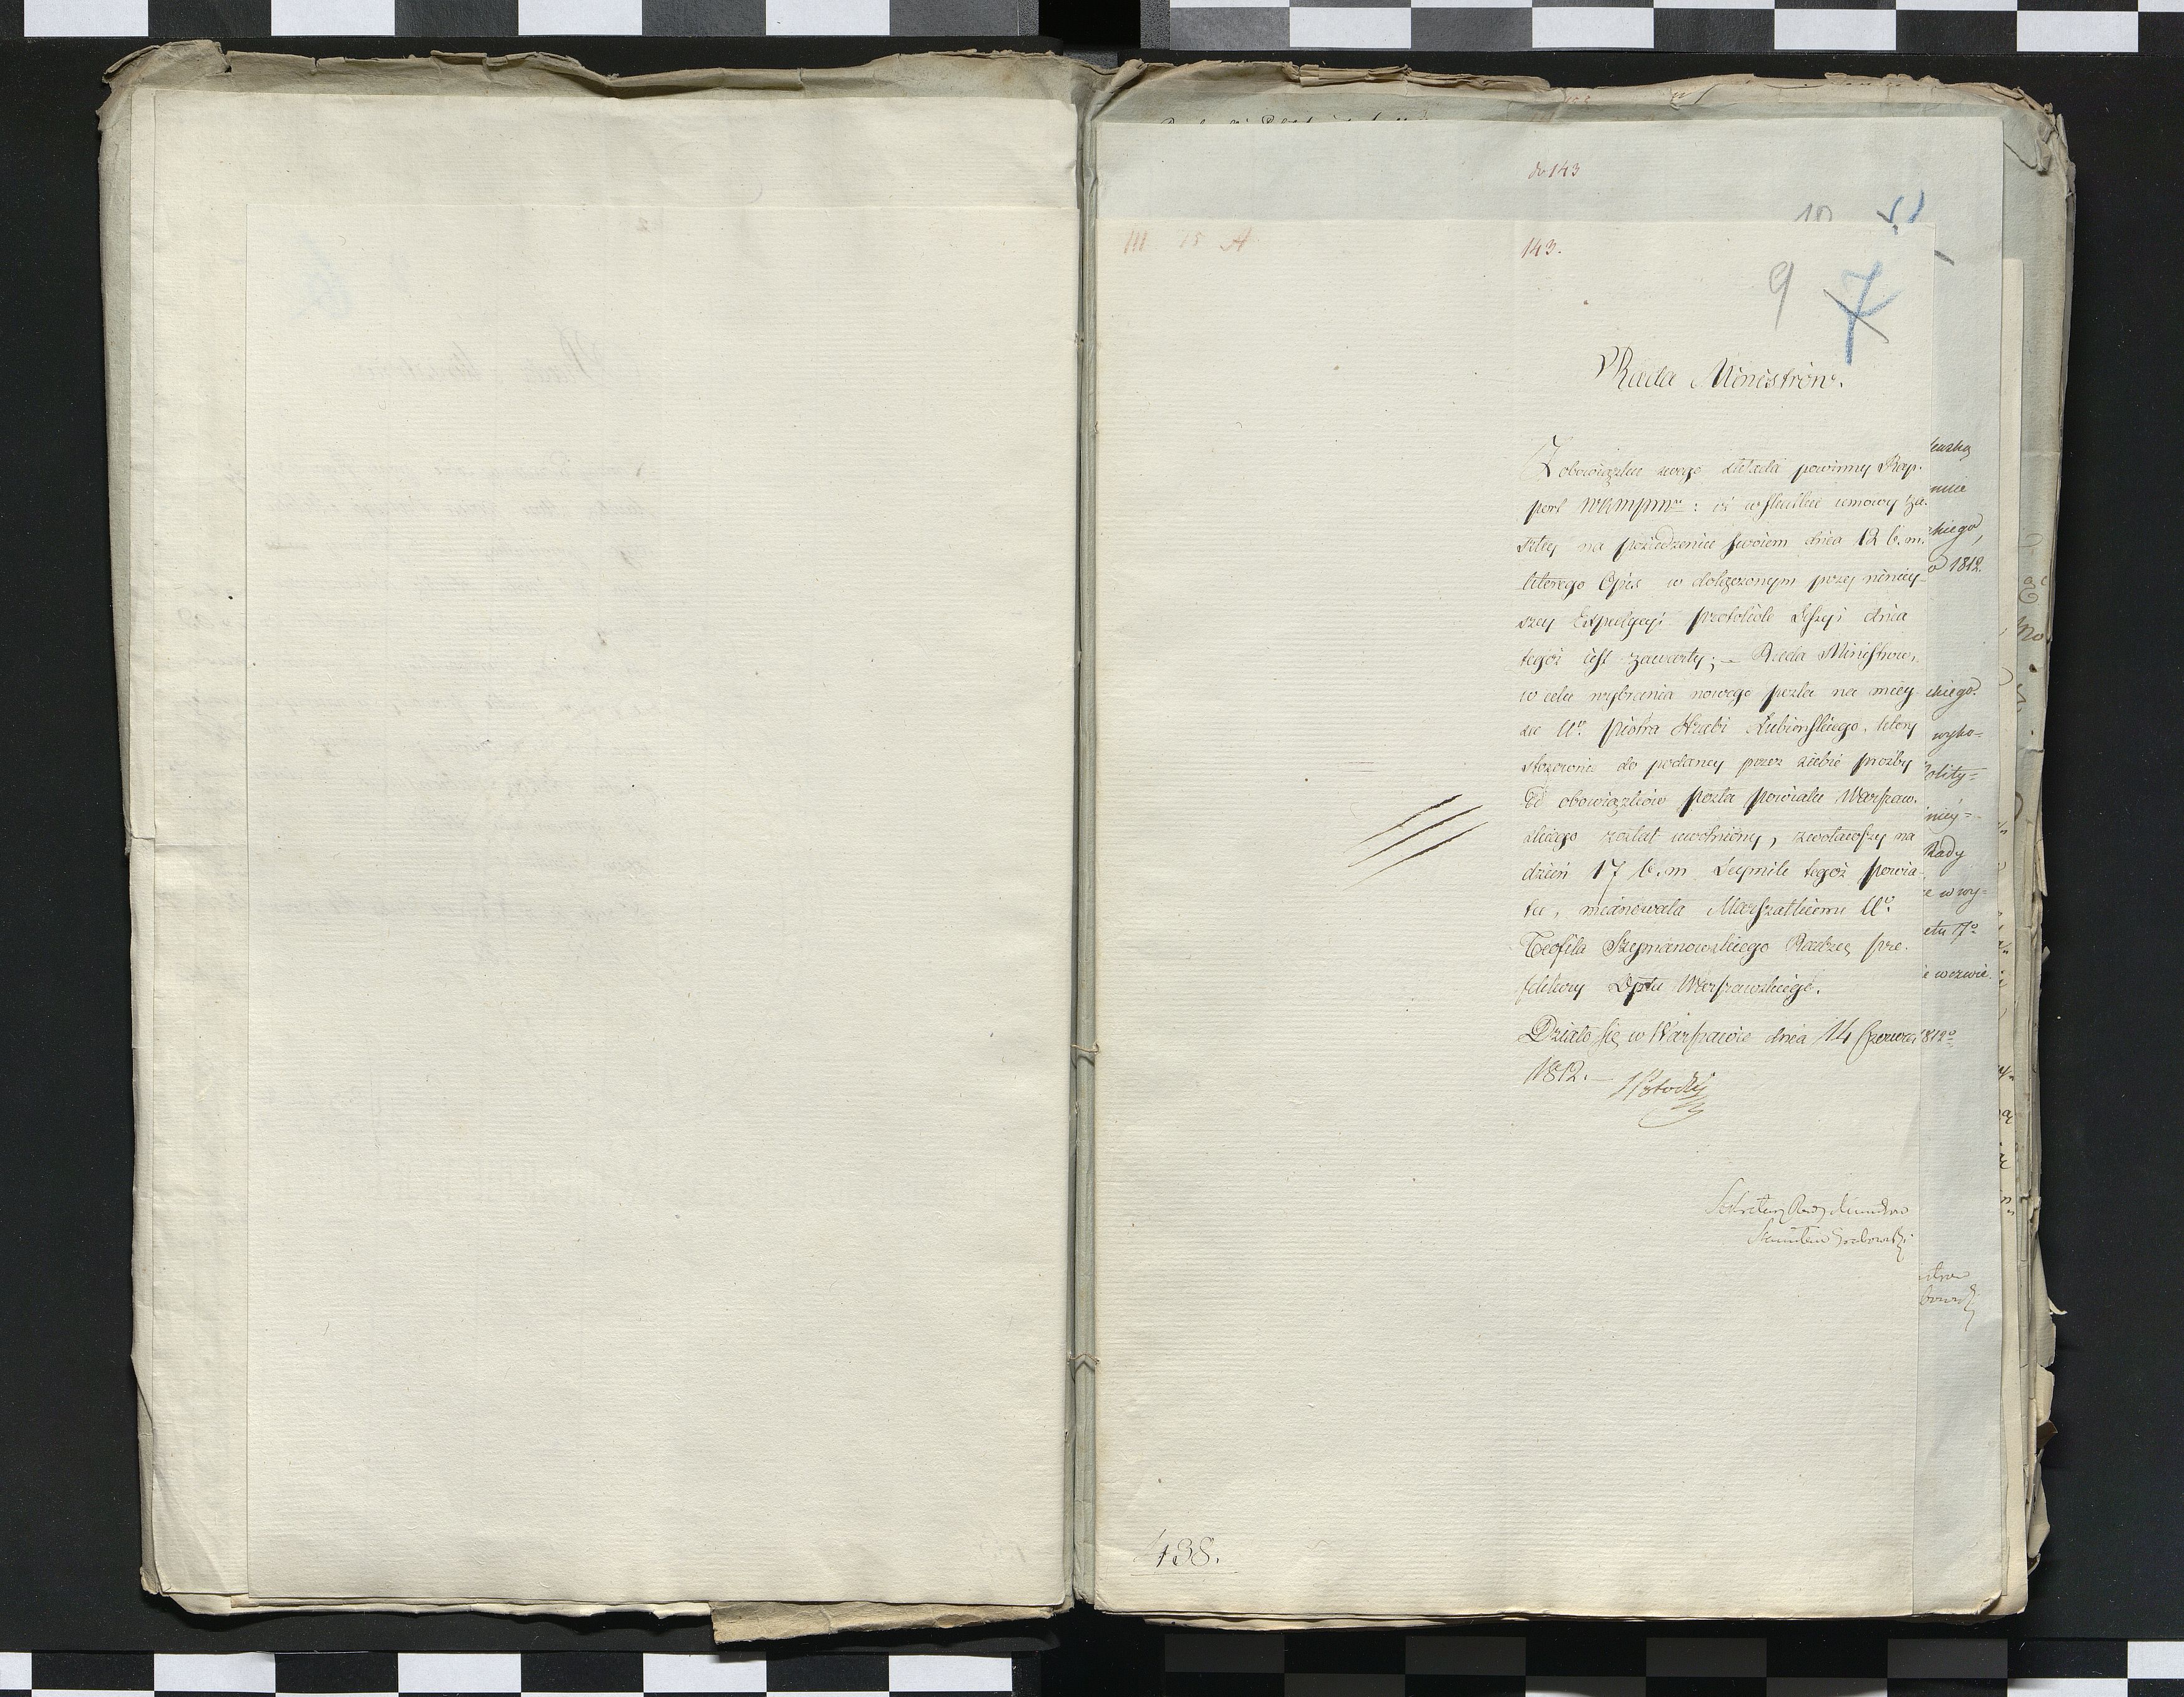 do 143
10
III 15 A
143.
9 7
Rada Ministrów.
Z obowiązku swego składa powinny Rap-
port WKMPMu: iż w skutku umowy za-
szłey na posiedzeniu swoiem dnia 12 b. m.
którego Opis w dołączonym przy niniey-
szey Expedycyi protokóle Sessyi dnia
tegoż iest zawarty; – Rada Ministrów,
w celu wybrania nowego posła na miey-
sce Uo. Piotra Hrabi Łubieńskiego, który
stosownie do podaney przez siebie prośby
Od obowiązków posła powiatu Warszaw-
skiego został uwolniony, zwoławszy na
dzień 17 b. m. Seymik tegoż powia-
tu, mianowała Marszałkiem Uo.
Teofila Szymanowskiego Radzcę pre-
fektury Dptu Warszawskiego.
Działo się w Warszawie dnia 14 Czerwca
1812. – S Potocki
Sekretarz Rady Ministrów
Stanisław Grabowski
438.
skiego,
1812.
skiego.
wyko-
Polity=
niey=
Rady
w wy=
1812o